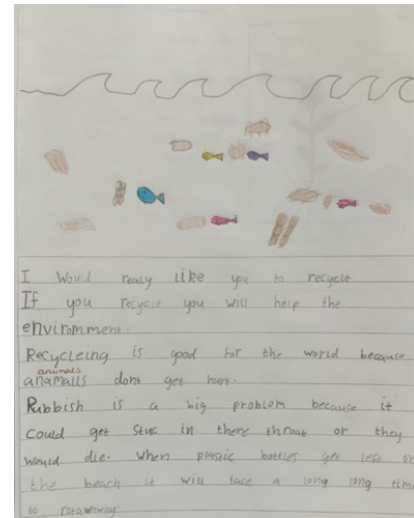 I Would realy like you to recycle
If you recycle you will help the
enviromment.
Recycleing is good for the world because
animals
anamalls dont get hurt.
Rubbish is a big problom because it
Could get stuc in there throat or they
Would die. when plastic bottles get left on
the beach it will tace a long long time
to